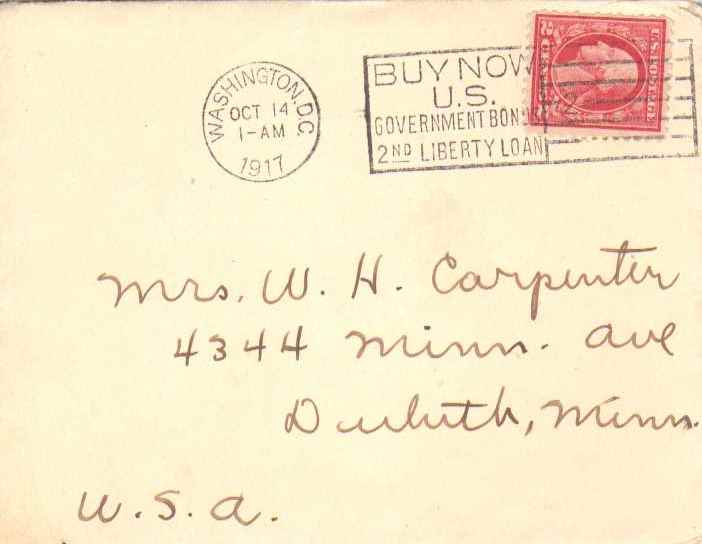 WASHINGTON, D.C.
OCT 14
1-AM
1917
BUY NOW
U.S.
GOVERNMENT BONDS
2ND LIBERTY LOAN
Mrs. W. H. Carpenter
4344 Minn. Ave
Duluth, Minn.
U.S.A.